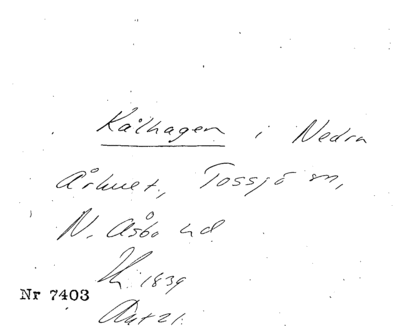 Kålhagen i Nedra
Århuet, Tossjö sn,
N. Åsbo hd
Hu 1839
Nr 7403
Akt 21